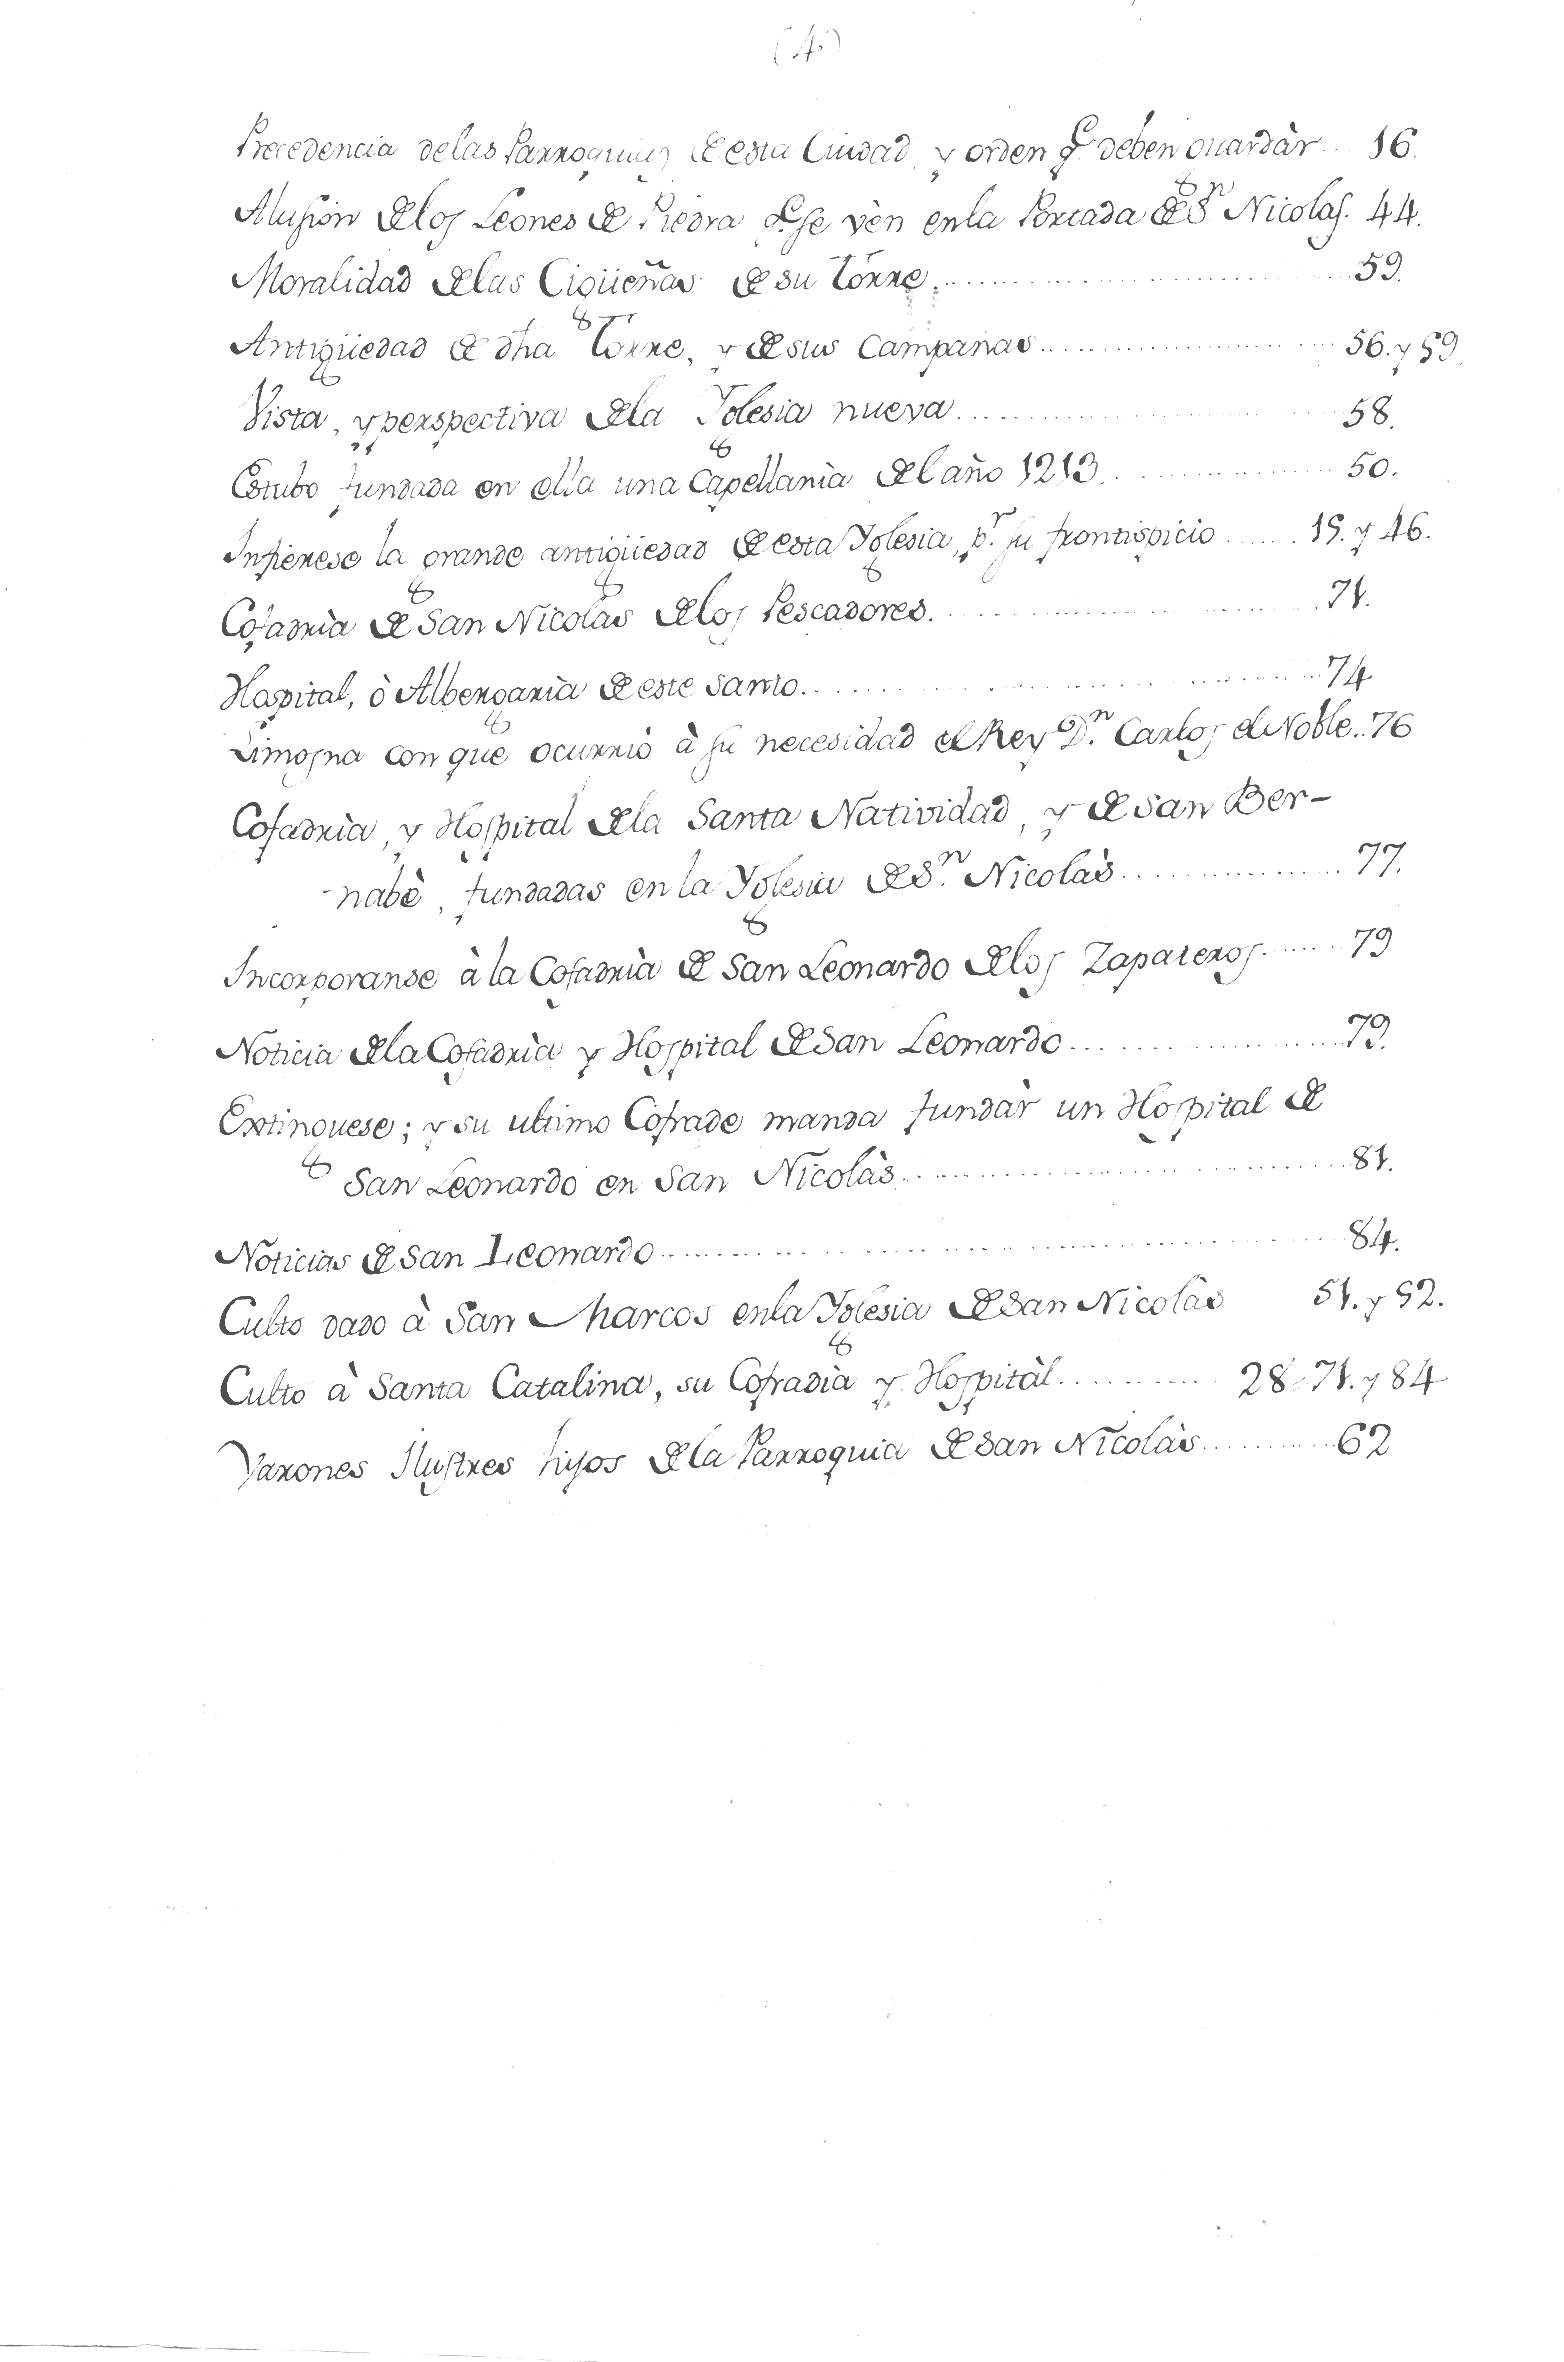 (4.)
Precedencia delas Parroquias de esta Ciudad, y orden q.e deben guardàr... 16.
Alusion de los Leones de Piedra q.e se vèn en la Portada de S.n Nicolas. 44.
Moralidad de las Cigüeñas de su Torre............ 59.
Antigüedad de dha Torre, y de sus Campanas............ 56. y 59.
Vista, y perspectiva de la Yglesia nueva............ 58.
Estubo fundada en ella una Capellanìa del año 1213............ 50.
Infierese la grande antigüedad de esta Yglesia, p.r su frontispicio...... 15. y 46.
Cofadrìa de San Nicolàs de los Pescadores............ 71.
Hospital, ò Albergaria de este Santo............ 74
Limosna con que ocurriò à su necesidad el Rey D.n Carlos el Noble.. 76
Cofadrìa, y Hospital de la Santa Natividad, y de San Ber-
-nabè, fundadas en la Yglesia de S.n Nicolàs............ 77.
Incorporanse à la Cofadrìa de San Leonardo de los Zapateros...... 79
Noticia de la Cofadrìa y Hospital de San Leonardo............ 79.
Extinguese; y su ultimo Cofrade manda fundàr un Hospital de
San Leonardo en San Nicolàs............ 81.
Noticias de San Leonardo............ 84.
Culto dado à San Marcos en la Yglesia de San Nicolàs 51. y 52.
Culto à Santa Catalina, su Cofradìa y Hospitàl............ 28. 71. y 84
Varones Ilustres hijos de la Parroquia de San Nicolàs............ 62